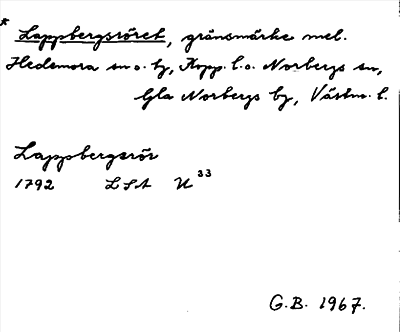 * Lappbergsröret, gränsmärke mel.
Hedemora sn o. by, Kopp. l. o. Norbergs sn,
Gla Norbergs by, Västm. l.
Lappbergsrör
1792 LSA U 33
G.B. 1967.